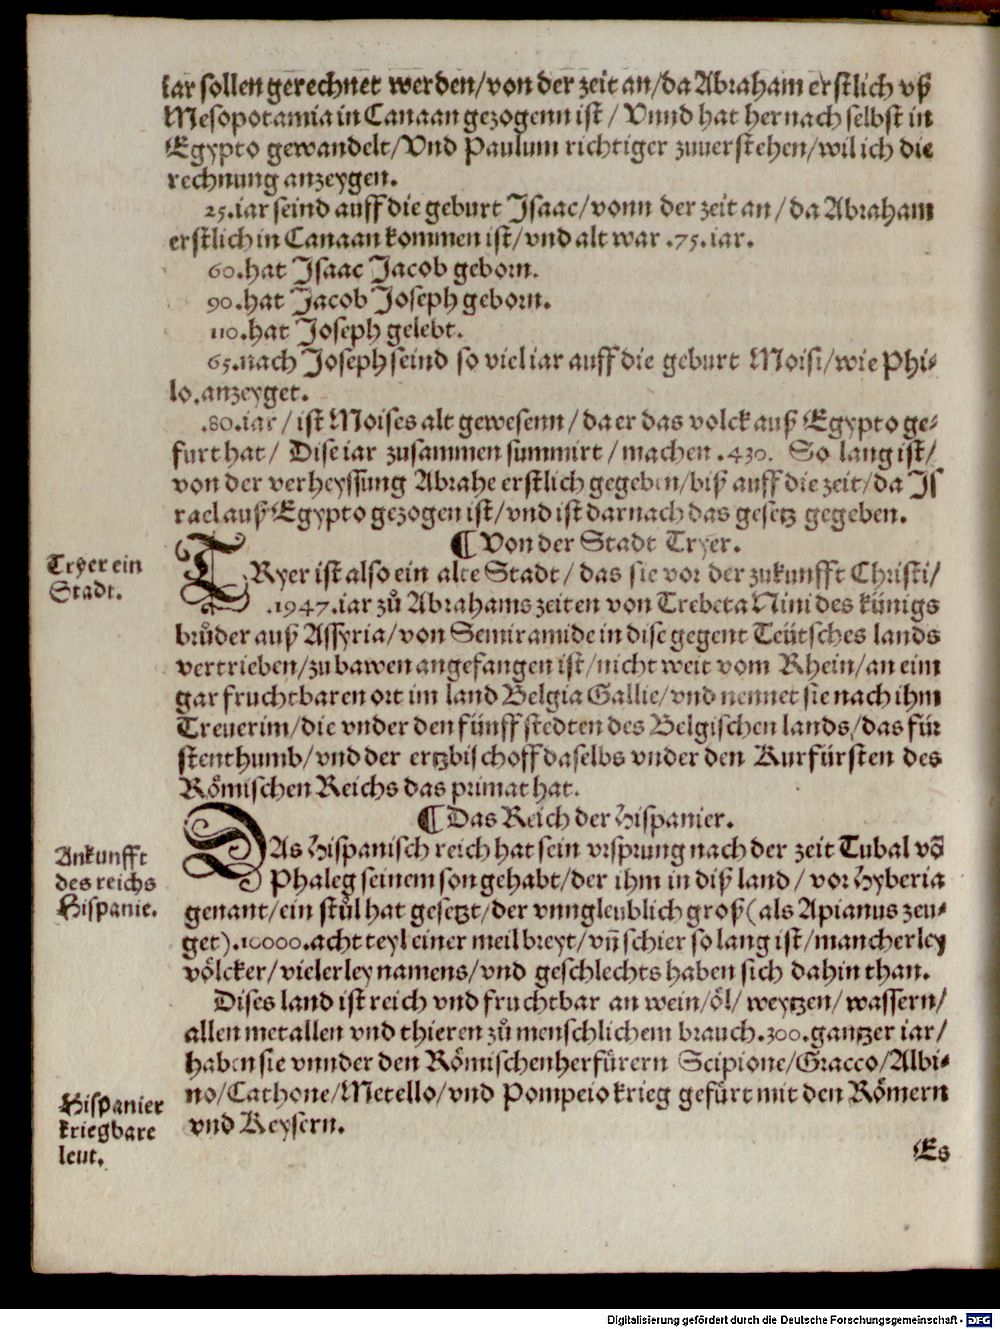 iar sollen gerechnet werden/von der zeit an/da Abraham erstlich vß
Mesopotamia in Canaan gezogenn ist/ Vnnd hat hernach selbst in
Egypto gewandelt/Vnd Paulum richtiger zuuerstehen/wil ich die
rechnung anzeygen.
25.iar seind auff die geburt Isaac/vonn der zeit an/da Abraham
erstlich in Canaan kommen ist/vnd alt war .75.iar.
60.hat Isaac Jacob geborn.
90.hat Jacob Joseph geborn.
110.hat Joseph gelebt.
65.nach Joseph seind so viel iar auff die geburt Moisi/wie Phi-
lo.anzeyget.
.80.iar/ist Moises alt gewesenn/da er das volck auß Egypto ge-
furt hat/ Dise iar zusammen summirt/machen .430. So lang ist/
von der verheyssung Abrahe erstlich gegeben/biß auff die zeit/da Is
rael auß Egypto gezogen ist/vnd ist darnach das gesetz gegeben.
¶ Von der Stadt Tryer.
Tryer ein
Stadt.
TRyer ist also ein alte Stadt/das sie vor der zukunfft Christi/
.1947.iar zů Abrahams zeiten von Trebeta Nini des künigs
brůder auß Assyria/von Semiramide in dise gegent Teütsches lands
vertrieben/zu bawen angefangen ist/nicht weit vom Rhein/an eim
gar fruchtbaren ort im land Belgia Gallie/vnd nennet sie nach ihm
Treuerim/die vnder den fünff stedten des Belgischen lands/das für
stenthumb/vnd der ertzbischoff daselbs vnder den Kurfürsten des
Römischen Reichs das primat hat.
¶ Das Reich der Hispanier.
Ankunfft
des reichs
Hispanie.
DAs Hispanisch reich hat sein vrsprung nach der zeit Tubal vō
Phaleg seinem son gehabt/der ihm in diß land/vor Hyberia
genant/ein stůl hat gesetzt/der vnngleublich groß (als Apianus zeu-
get).10000.acht teyl einer meil breyt/vñ schier so lang ist/mancherley
völcker/vielerley namens/vnd geschlechts haben sich dahin than.
Dises land ist reich vnd fruchtbar an wein/öl/weytzen/wassern/
allen metallen vnd thieren zů menschlichem brauch.300.gantzer iar/
haben sie vnnder den Römischen herfürern Scipione/Gracco/Albi-
no/Cathone/Metello/vnd Pompeio krieg gefürt mit den Römern
vnd Keysern.
Hispanier
kriegbare
leut.
Es
Digitalisierung gefördert durch die Deutsche Forschungsgemeinschaft - DFG